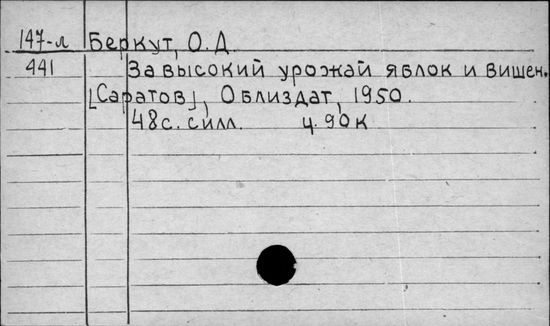 147-л Беркут, О.Д.
441 За высокий урожай яблок и вишен.
[Саратов], Облиздат, 1950.
48с. с илл. ц. 90к